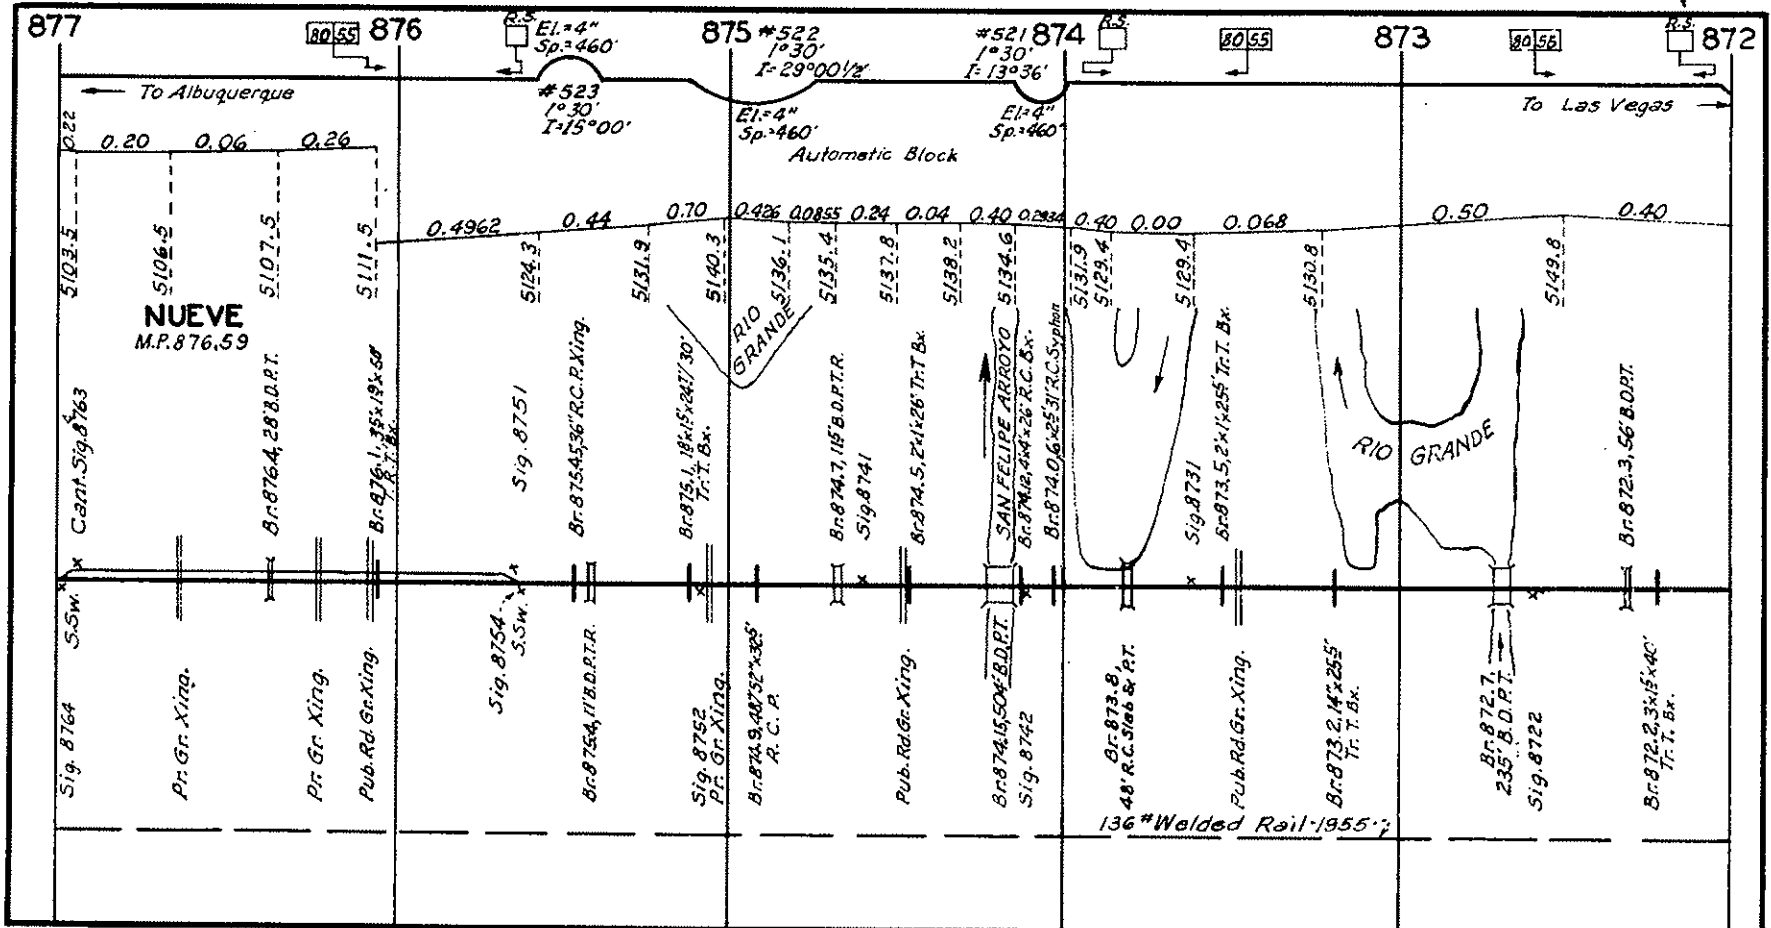 877
80 55
876
R.S.
El.=4"
Sp.=460'
875
#522
1°30'
I=29°00½'
#521
1°30'
I=13°36'
874
R.S.
80 55
873
80 56
R.S.
872
← To Albuquerque
#523
1°30'
I=15°00'
El=4"
Sp.=460'
El=4"
Sp.=460'
To Las Vegas →
Automatic Block
0.22
0.20
0.06
0.26
0.4962
0.44
0.70
0.426
0.0855
0.24
0.04
0.40
0.2934
0.40
0.00
0.068
0.50
0.40
5103.5
5106.5
5107.5
5111.5
5124.3
5131.9
5140.3
5136.1
5135.4
5137.8
5138.2
5134.6
5131.9
5129.4
5129.4
5130.8
5149.8
NUEVE
M.P.876.59
RIO
GRANDE
SAN FELIPE ARROYO
RIO GRANDE
Cant.Sig.8763
Br.876.4, 28' B.D.P.T.
T.R.T.Bx.
Sig. 8751
Br.875.45,36"R.C.P.Xing.
Tr.T. Bx.
Br.874.7, 115' B.D.P.T.R.
Sig.8741
Br.874.5, 2'x1'x26' Tr.T Bx.
Br.874.12, 4'x4'x26' R.C. Bx.
R.C.Syphon
Sig.8731
Tr.T. Bx.
Br.872.3, 56' B.D.P.T.
Sig. 8764
S.Sw.
Pr. Gr. Xing.
Pr. Gr. Xing.
Pub.Rd.Gr.Xing.
Sig. 8754
S.Sw.
Br.875.4, 11' B.D.P.T.R.
Sig. 8752
Pr. Gr. Xing.
R. C. P.
Pub.Rd.Gr.Xing.
Br.874.15, 504' B.D.P.T.
Sig. 8742
Br.873.8,
48' R.C. Slab & P.T.
Pub.Rd.Gr.Xing.
Tr. T. Bx.
Br.872.7,
235' B.D.P.T.
Sig.8722
Tr. T. Bx.
136# Welded Rail-1955